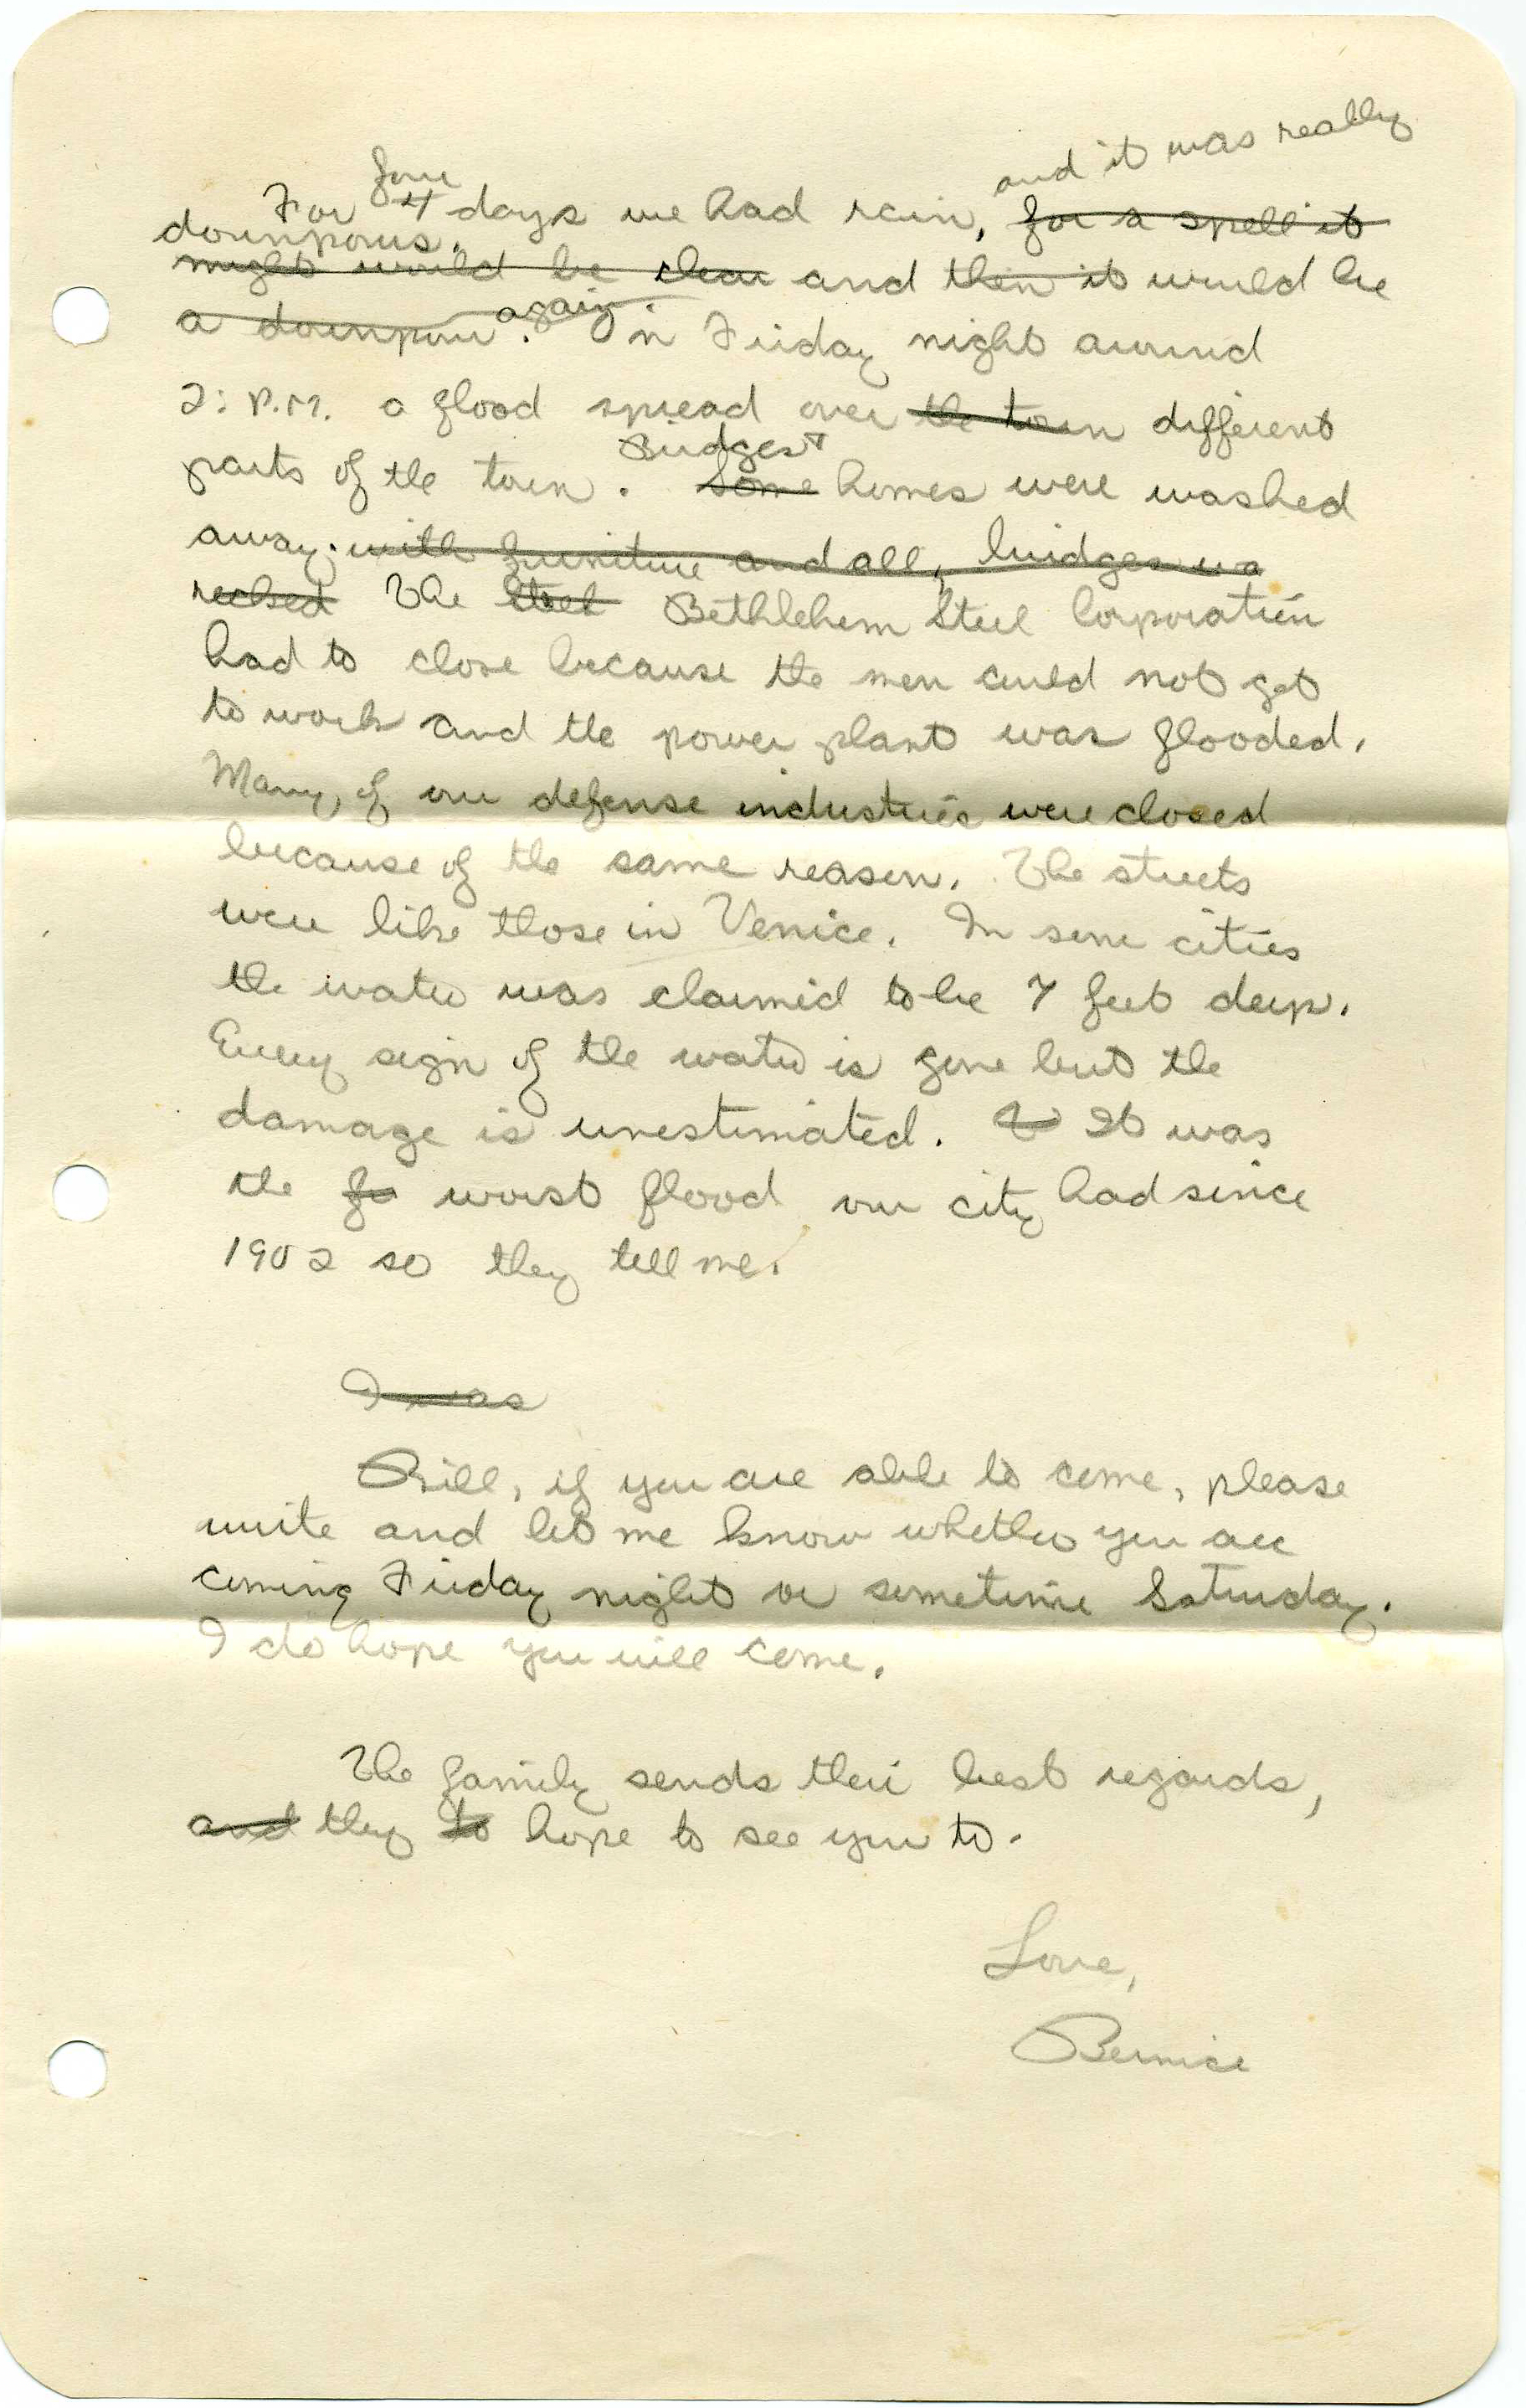 four and it was really
For 4 days we had rain, for a spell it
downpours.
might would be clear and then it would be
a downpour again. On Friday night around
2: P.M. a flood spread over the town different
Bridges &
parts of the town. Some homes were washed
away. with furniture and all, bridges
The Steel Bethlehem Steel Corporation
had to close because the men could not get
to work and the power plant was flooded.
Many of our defense industries were closed
because of the same reason. The streets
were like those in Venice. In some cities
the water was claimed to be 7 feet deep.
Every sign of the water is gone but the
damage is unestimated. It was
the fo worst flood our city had since
1902 so they tell me.
I was
Bill, if you are able to come, please
write and let me know whether you are
coming Friday night or sometime Saturday.
I do hope you will come.
The family sends their best regards,
and they to hope to see you to.
Love,
Bernice